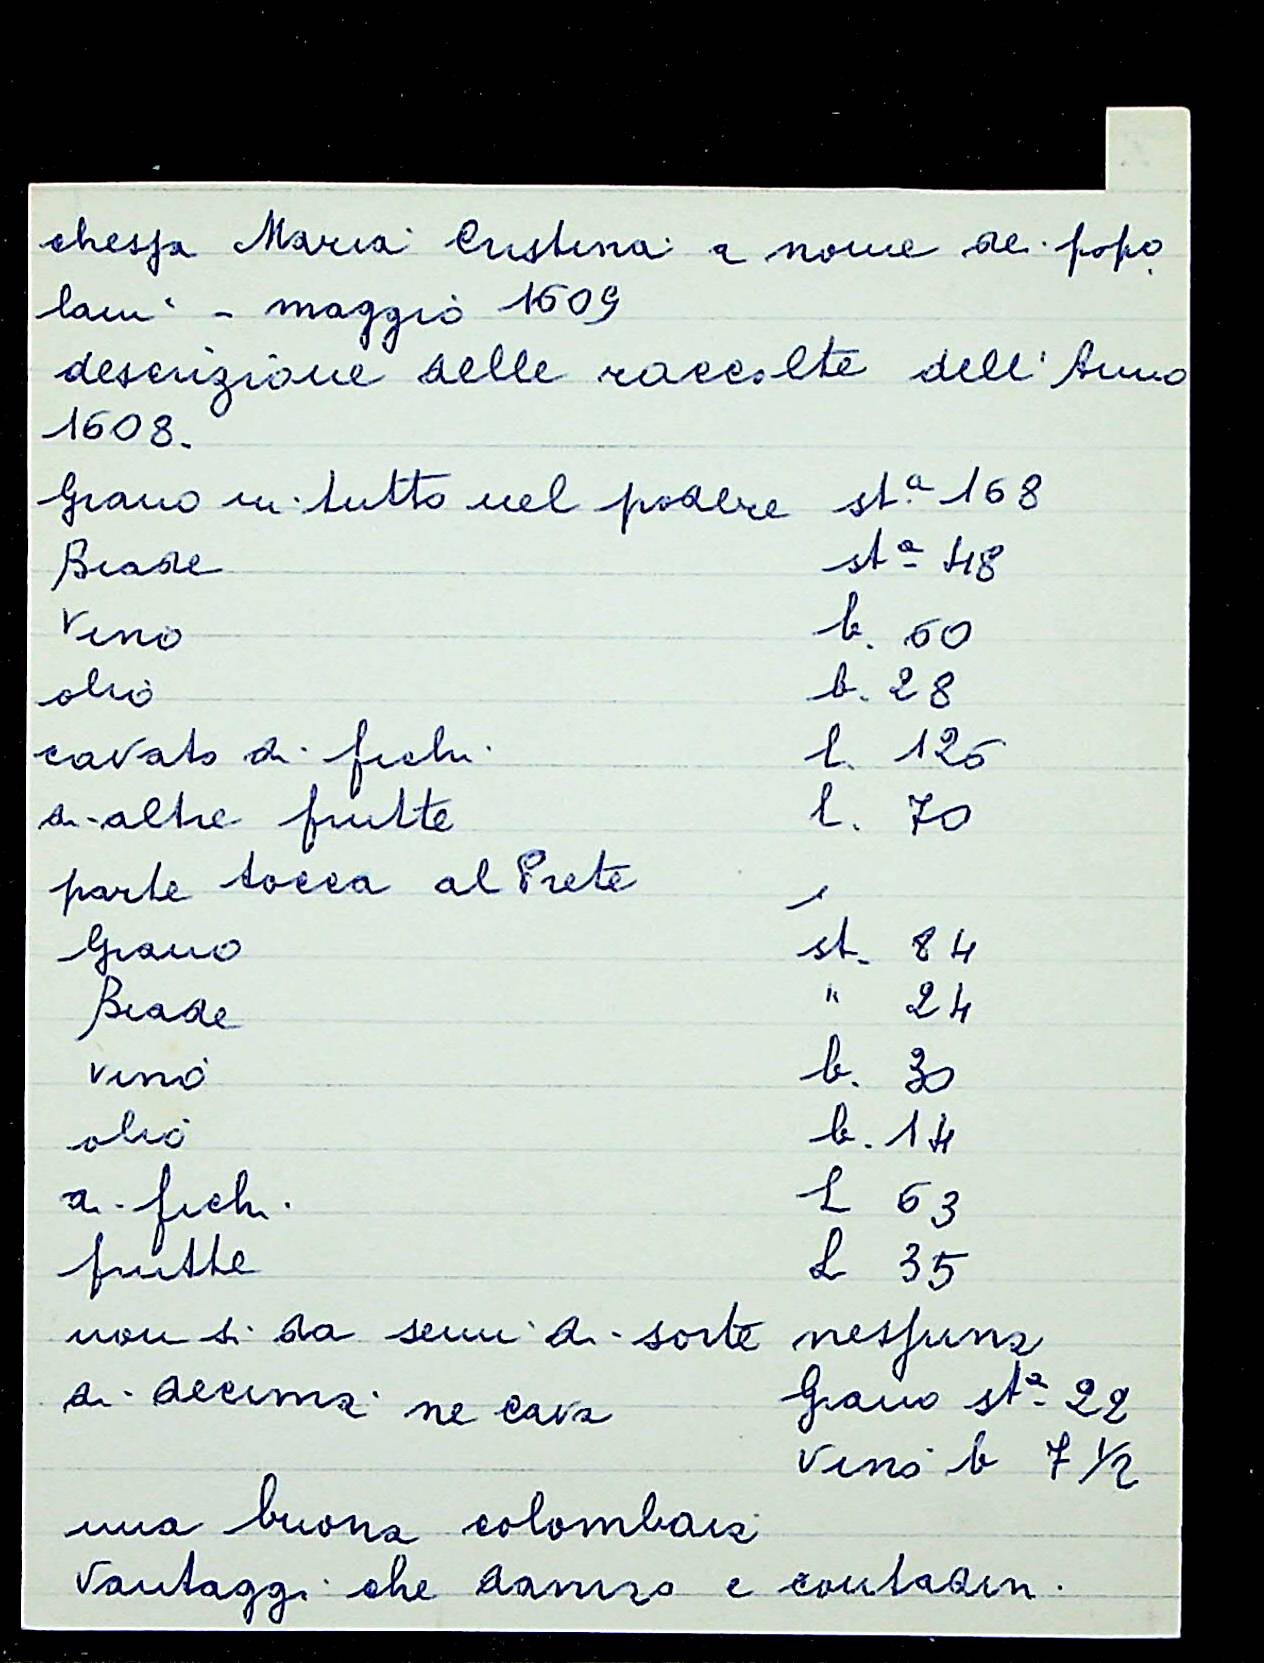 chessa Maria Cristina a nome de popo
lani - maggio 1609
descrizione delle raccolte dell'Anno
1608.
Grano in tutto nel podere stª 168
Biade stª 48
Vino b. 60
olio b. 28
cavato di fichi l. 126
di altre frutte l. 70
parte tocca al Prete
Grano st. 84
Biade " 24
vino b. 30
olio b. 14
di fichi L 63
frutte L 35
non si da semi di sorte nessuna
di decima ne cava Grano stª 22
Vino b 7 1/2
una buona colombaia
Vantaggi che danno e contadin.